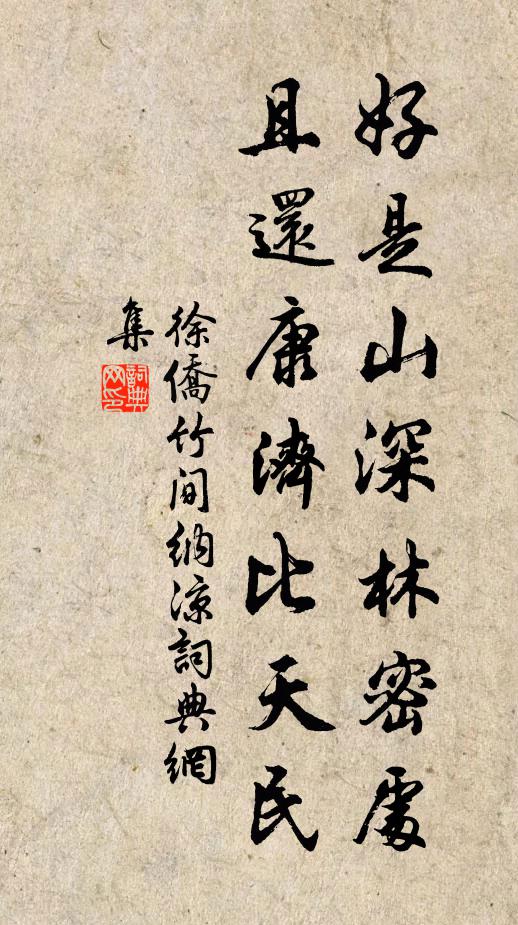 好是山深林密處
且還康濟比天民
徐僑竹間納涼詞典網
集
詞典網印